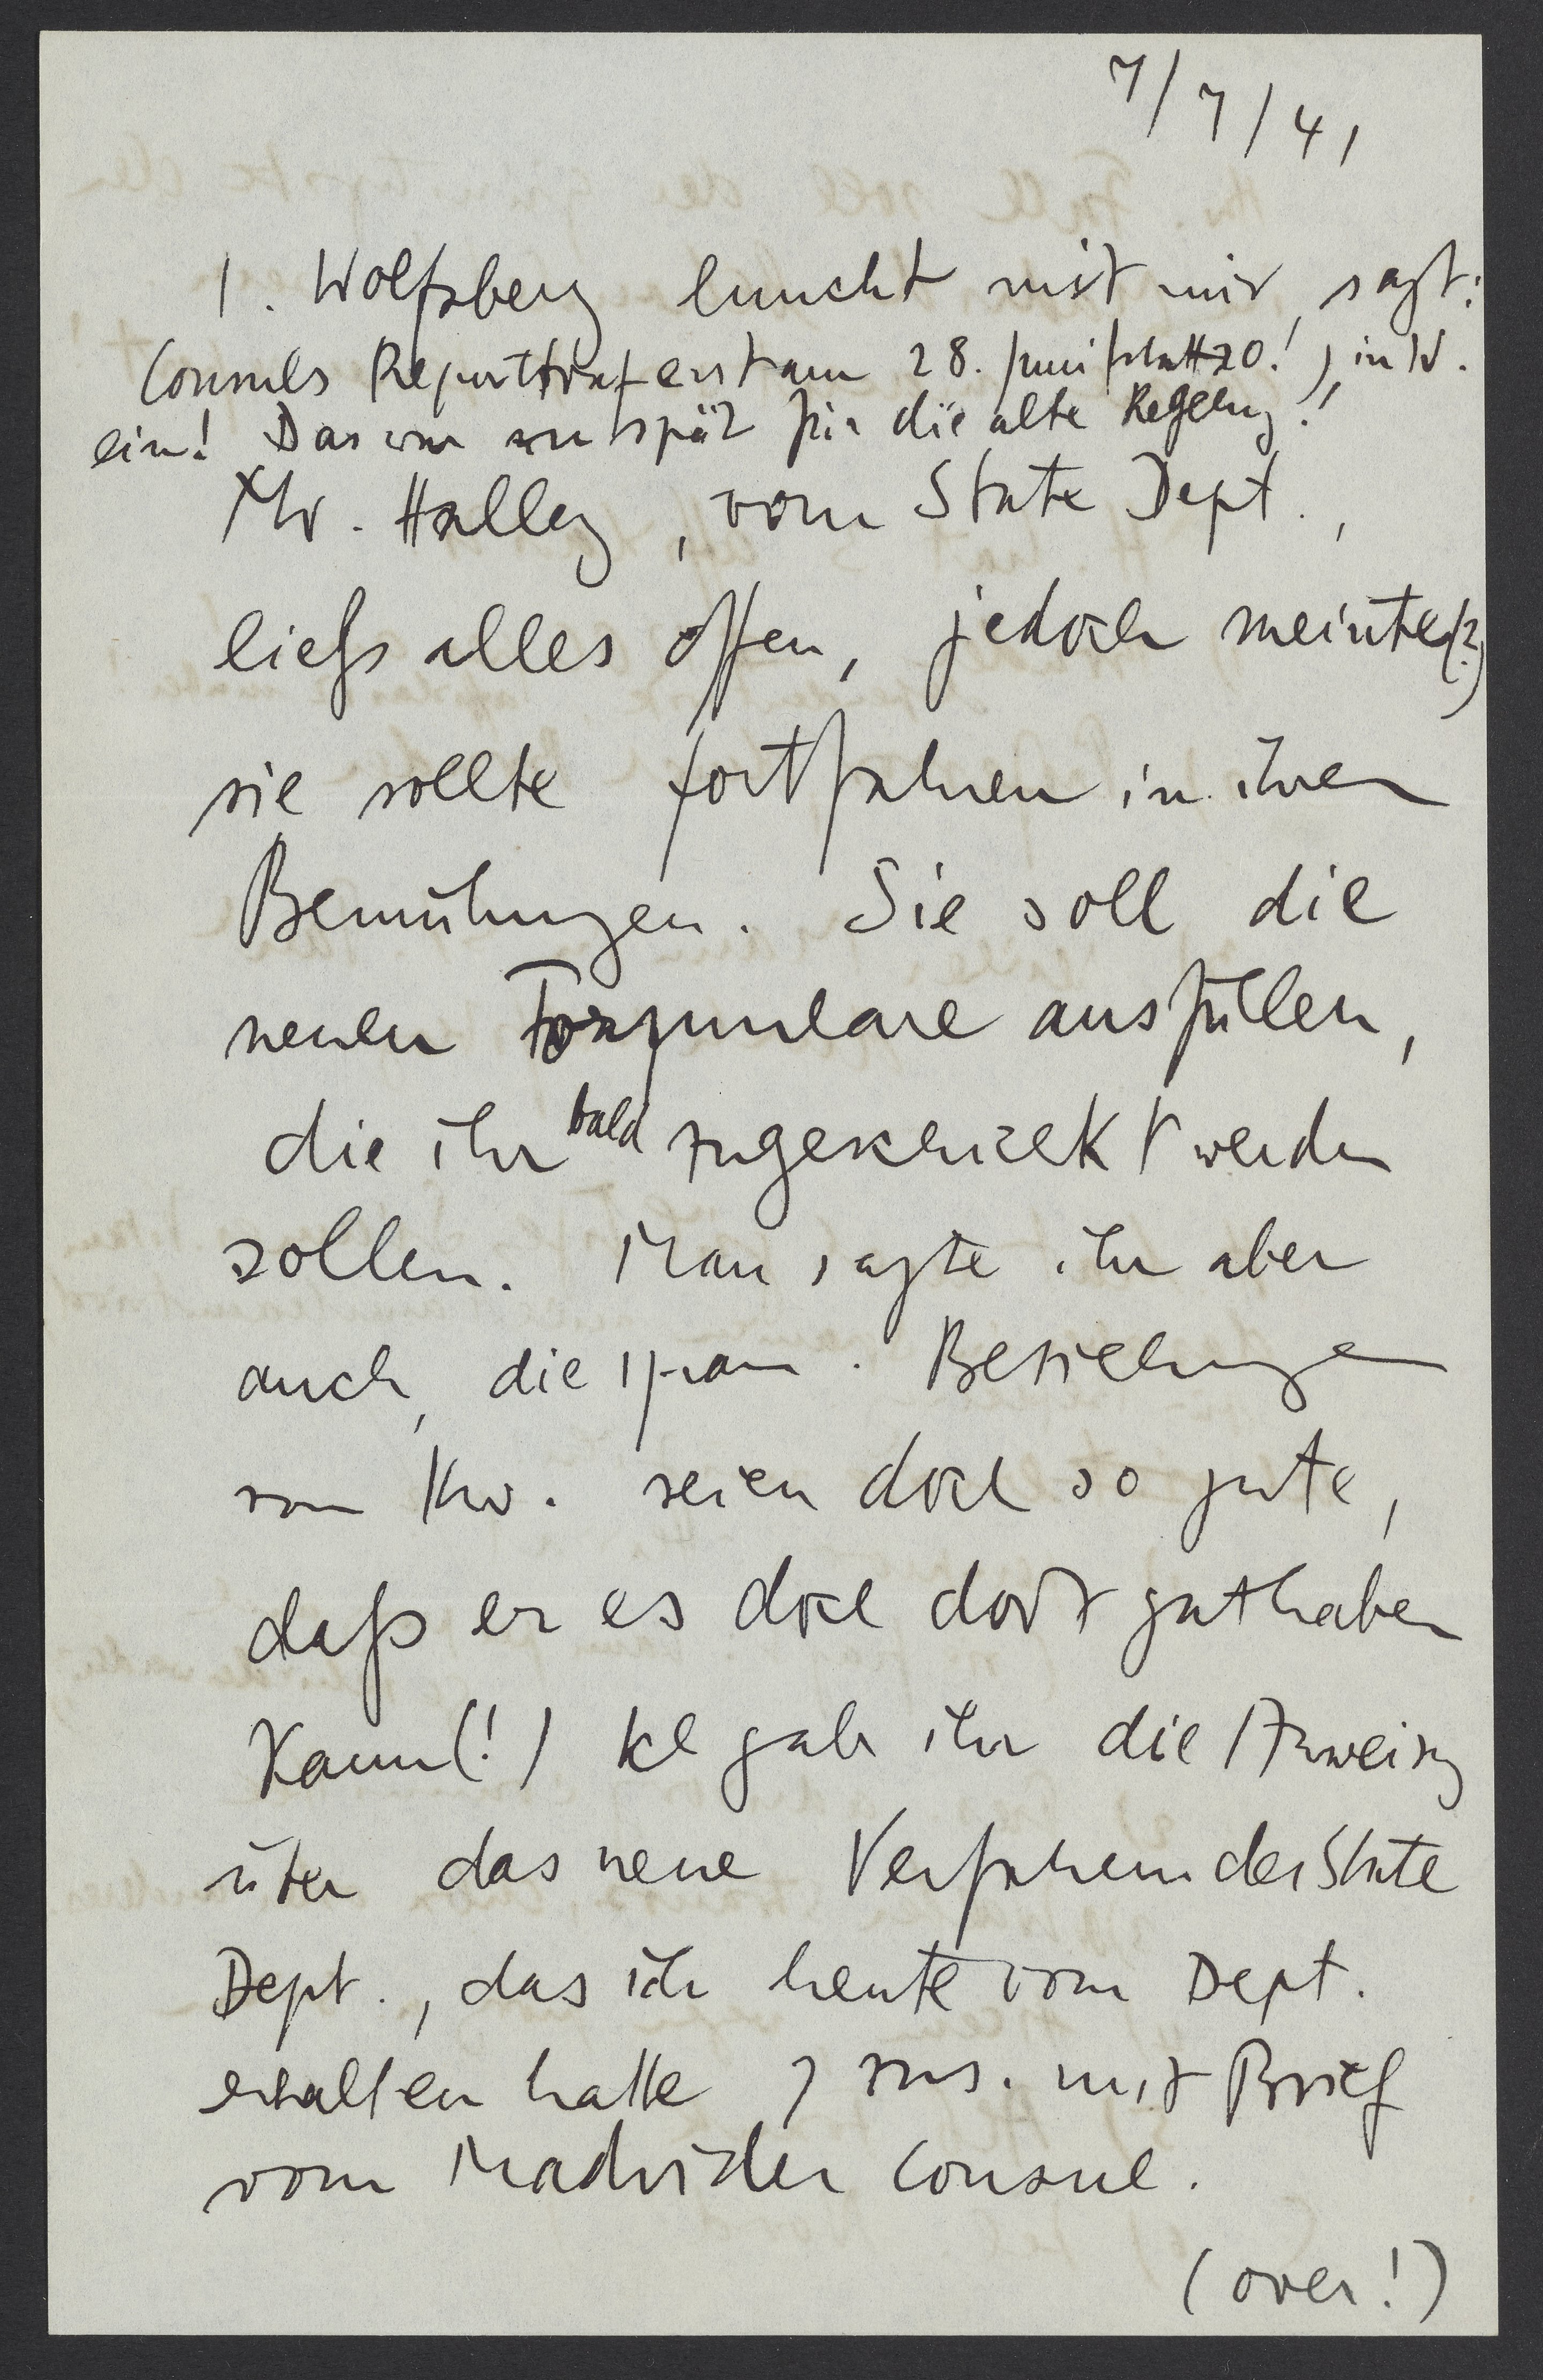 7/7/41
1. Wolfsberg luncht mit mir, sagt:
Consuls Report traf erst am 28. Juni (statt 20.!) in W.
ein! Das war zu spät für die alte Regelg!
Mr. Halley, vom State Dept.,
liess alles offen, jedoch meinte(?)
sie sollte fortfahren in ihren
Bemühungen. Sie soll die
neuen Formulare ausfüllen,
die ihr bald zugeschickt werden
sollen. Man sagte ihr aber
auch, die span. Beziehungen
von Kw. seien doch so gute,
dass er es doch dort gut haben
kann(!) Ich gab ihr die Anweisg
über das neue Verfahren der State
Dept., das ich heute vom Dept.
erhalten hatte, zus. mit Brief
vom Madrider Consul.
(over!)